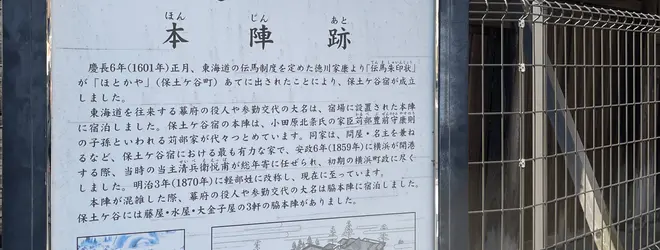 ほん じん あと
本陣跡
慶長6年(1601年)正月、東海道の伝馬制度を定めた徳川家康より「伝馬朱印状」
が「ほどがや」(保土ケ谷町)あてに出されたことにより、保土ケ谷宿が成立
しました。
東海道を往来する幕府の役人や参勤交代の大名は、宿場に設置された本陣
に宿泊しました。保土ケ谷宿の本陣は、小田原北条氏の家臣苅部豊前守康則
の子孫といわれる苅部家が代々つとめています。同家は、問屋・名主を兼ね
るなど、保土ケ谷宿における最も有力な家で、安政6年(1859年)に横浜が開港
する際、当時の当主清兵衛悦甫が総年寄に任ぜられ、初期の横浜町政に尽く
しました。明治3年(1870年)に軽部姓に改称し、現在に至っています。
本陣が混雑した際、幕府の役人や参勤交代の大名は脇本陣に宿泊しました。
保土ケ谷には藤屋・水屋・大金子屋の3軒の脇本陣がありました。